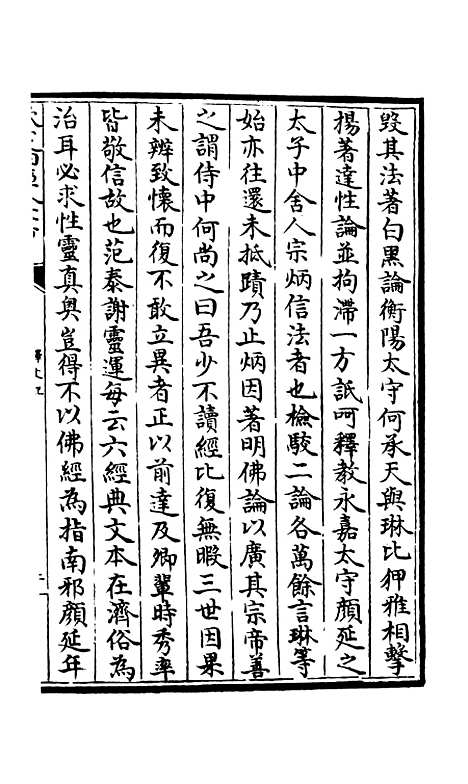 毀其法著白黑論衡陽太守何承天與琳比狎雅相擊
揚著達性論並拘滯一方詆呵釋教永嘉太守顏延之
太子中舍人宗炳信法者也檢駮二論各萬餘言琳等
始亦往還未抵蹟乃止炳因著明佛論以廣其宗帝善
之謂侍中何尚之曰吾少不讀經比復無暇三世因果
未辨致懷而復不敢立異者正以前達及卿輩時秀率
皆敬信故也范泰謝靈運每云六經典文本在濟俗為
治耳必求性靈真奧豈得不以佛經為指南邪顏延年